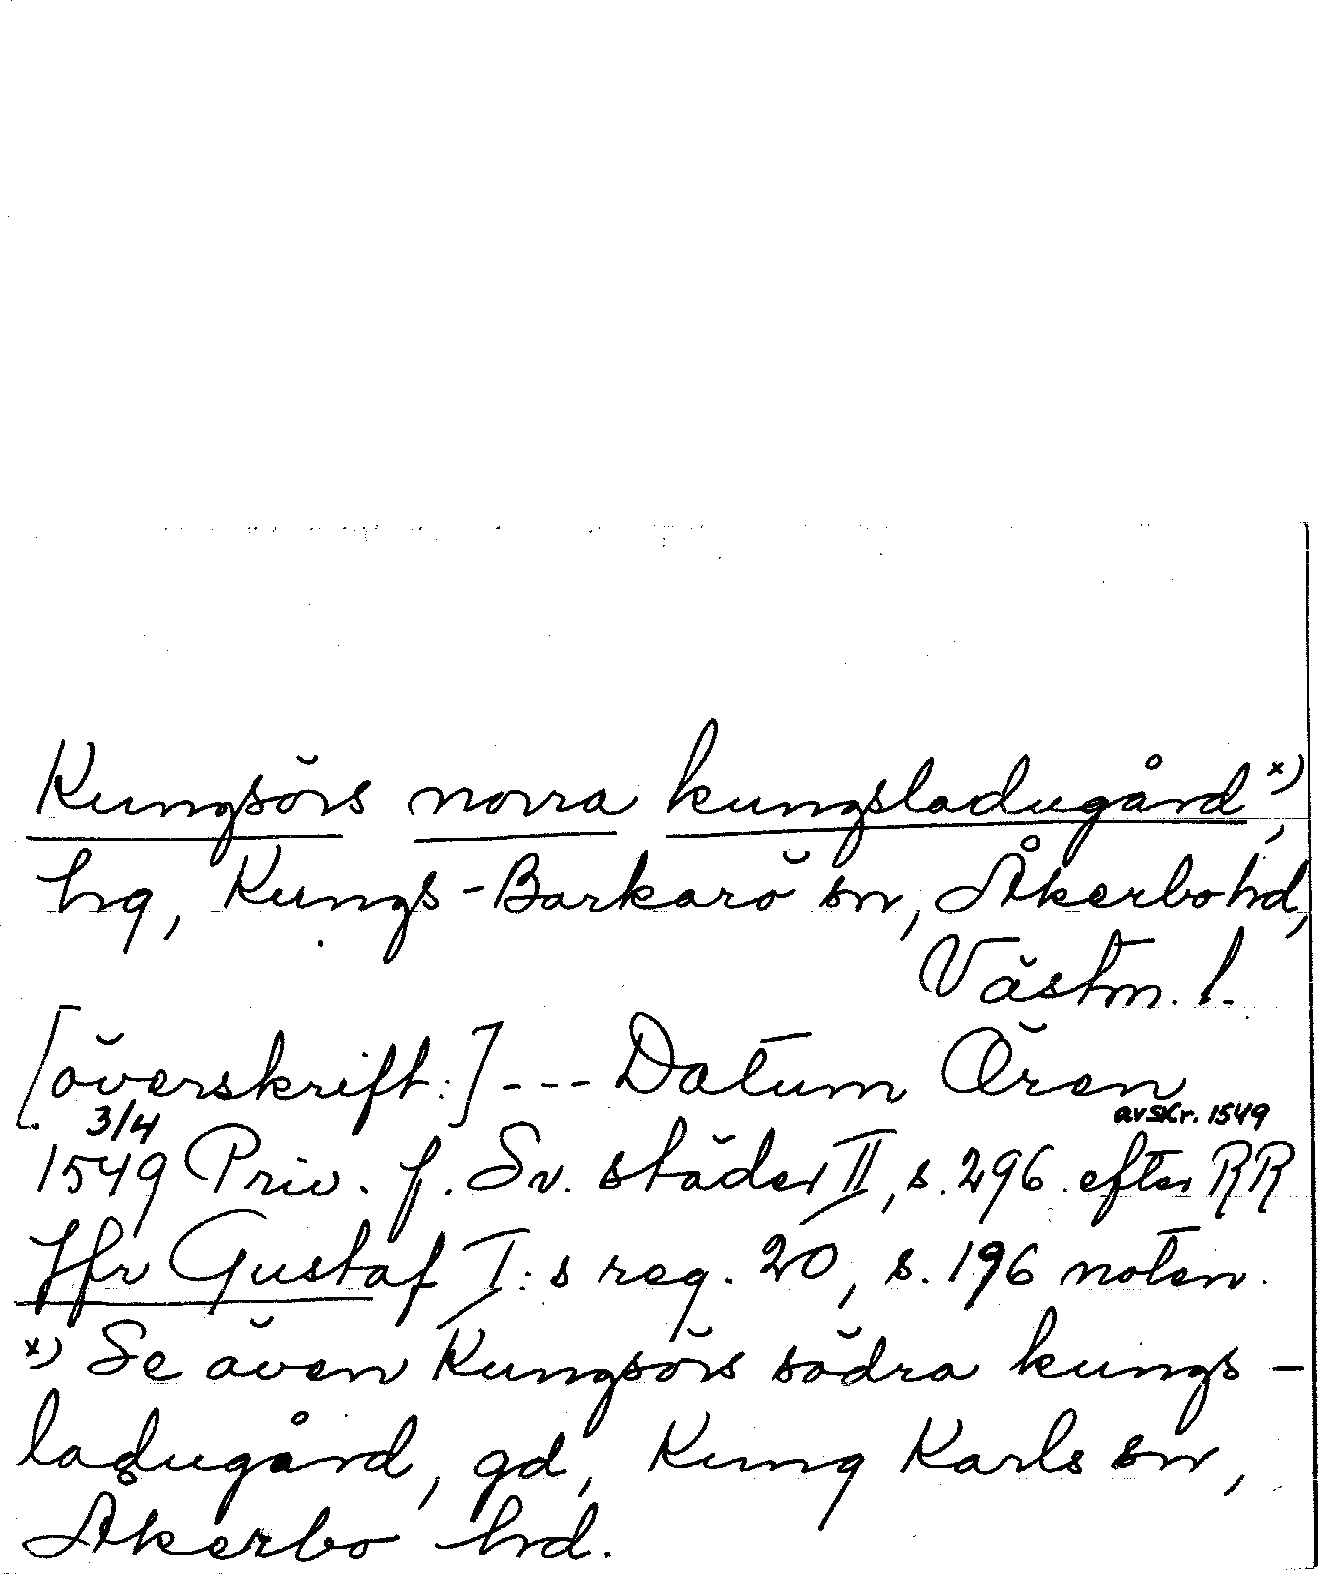 Kungsörs norra kungsladugård x),
hg, Kungs-Barkarö sn, Åkerbo hd,
Västm. l.
[överskrift:] --- Datum Ören
3/4 avskr. 1549
1549 Priv. f. Sv. städer II, s. 296. efter RR
Jfr Gustaf I:s reg. 20, s. 196 noten.
x) Se även Kungsörs södra kungs-
ladugård, gd, Kung Karls sn,
Åkerbo hd.